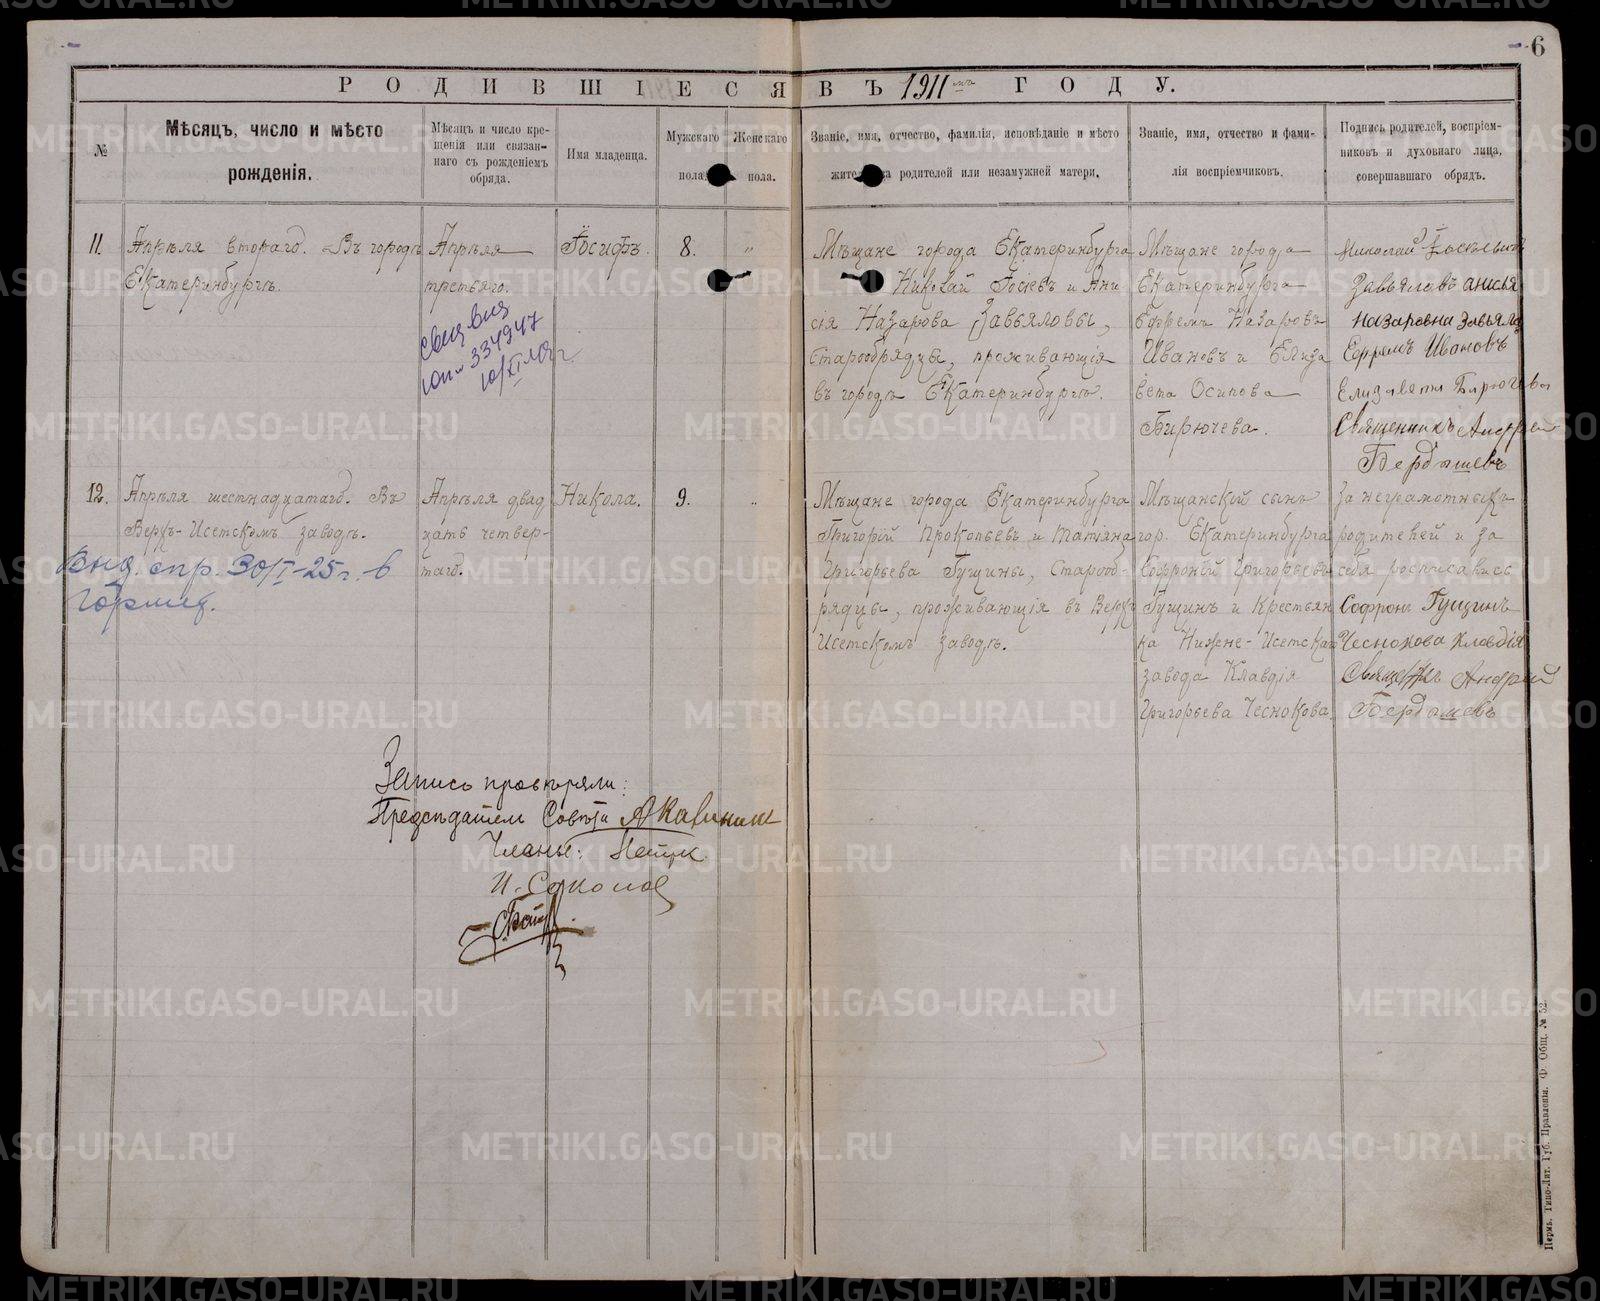 6
РОДИВШІЕСЯ ВЪ 1911мъ ГОДУ.
№
Мѣсяцъ, число и мѣсто
рожденія.
Мѣсяцъ и число кре-
щенія или связан-
наго съ рожденіемъ
обряда.
Имя младенца.
Мужскаго
пола.
Женскаго
пола.
Званіе, имя, отчество, фамилія, исповѣданіе и мѣсто
жите а родителей или незамужней матери.
Званіе, имя, отчество и фами-
лія воспріемчиковъ.
Подпись родителей, воспріем-
никовъ и духовнаго лица,
совершавшаго обрядъ.
11.
Апрѣля втораго. Въ городѣ
Екатеринбургѣ.
Апрѣля
третьяго.
Іосифъ.
8.
"
Мѣщане города Екатеринбурга
Николай Іосіевъ и Ани
сія Назарова Завьяловы,
Старообрядцы, проживающія
въ городѣ Екатеринбургѣ.
Мѣщане города
Екатеринбурга
Ефремъ Назаровъ
Ивановъ и Елиза
вета Осипова
Бирючева.
Николай
Завьяловъ анисья
Назаровна Завьяло
Ефремъ Ивановъ
Елизавета Бирючева
Священникъ Андрей
Бердышевъ
334947
12.
Апрѣля шестнадцатаго. Въ
Верхъ-Исетскомъ заводѣ.
Апрѣля двад
цать четвер-
таго.
Никола.
9.
"
Мѣщане города Екатеринбурга
Григорій Прокопьевъ и Татіяна
Григорьева Гущины, Старооб-
рядцы, проживающія въ Верхъ
Исетскомъ заводѣ.
Мѣщанской сынъ
гор. Екатеринбурга
Софроній Григорьевъ
Гущинъ и Крестьян
ка Нижне-Исетскаго
завода Клавдія
Григорьева Чеснокова.
За неграмотныхъ
родителей и за
себя росписались
Софронъ Гущинъ
Чеснокова Клавдія
Андрей
Бердышевъ
Выд. спр. 30/I-25 г. в
Запись провѣряли:
Предсѣдатель Совѣта
Члены:
И. Соколов
Пермь. Типо-Лит. Губ. Правленія. Ф. Общ. № 52.
METRIKI.GASO-URAL.RU